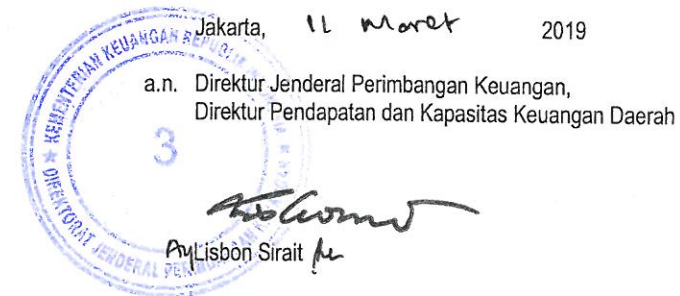 Jakarta, 11 Maret 2019
a.n. Direktur Jenderal Perimbangan Keuangan,
Direktur Pendapatan dan Kapasitas Keuangan Daerah
KEMENTERIAN KEUANGAN REPUBLIK
3
DIREKTORAT JENDERAL
Lisbon Sirait